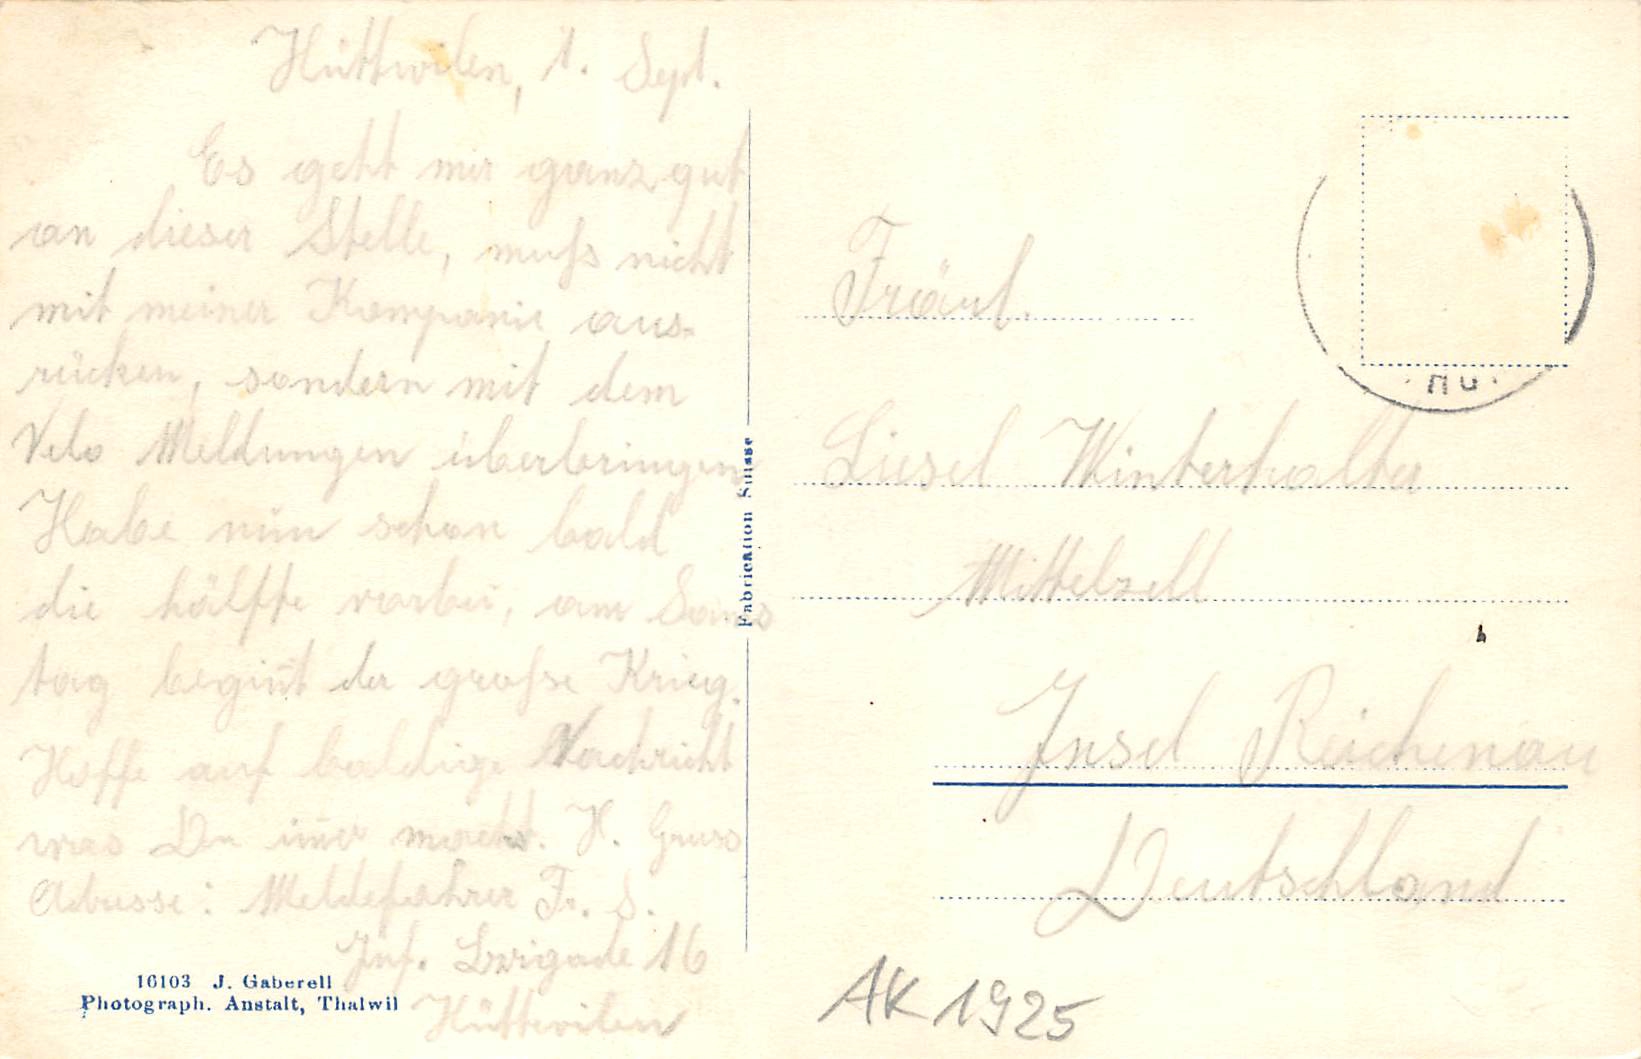 Hüttwilen, 1. Sept.
Es geht mir ganz gut
an dieser Stelle, muſs nicht
mit meiner Kompanie aus-
rücken, sondern mit dem
Velo Meldungen überbringen
Habe nun schon bald
die hälfte vorbei, am Sams
tag begin̄t der groſse Krieg.
Hoffe auf baldige Nachricht
was Du im̄er machst. H. Gruss
Adresse: Meldefahrer Fr. S.
Inf. Brigade 16
Hüttwilen
16103 J. Gaberell
Photograph. Anstalt, Thalwil
Fabrication Suisse
Fräul.
Liesel Winterhalter
Mittelzell
Insel Reichenau
Deutschland
AK 1925